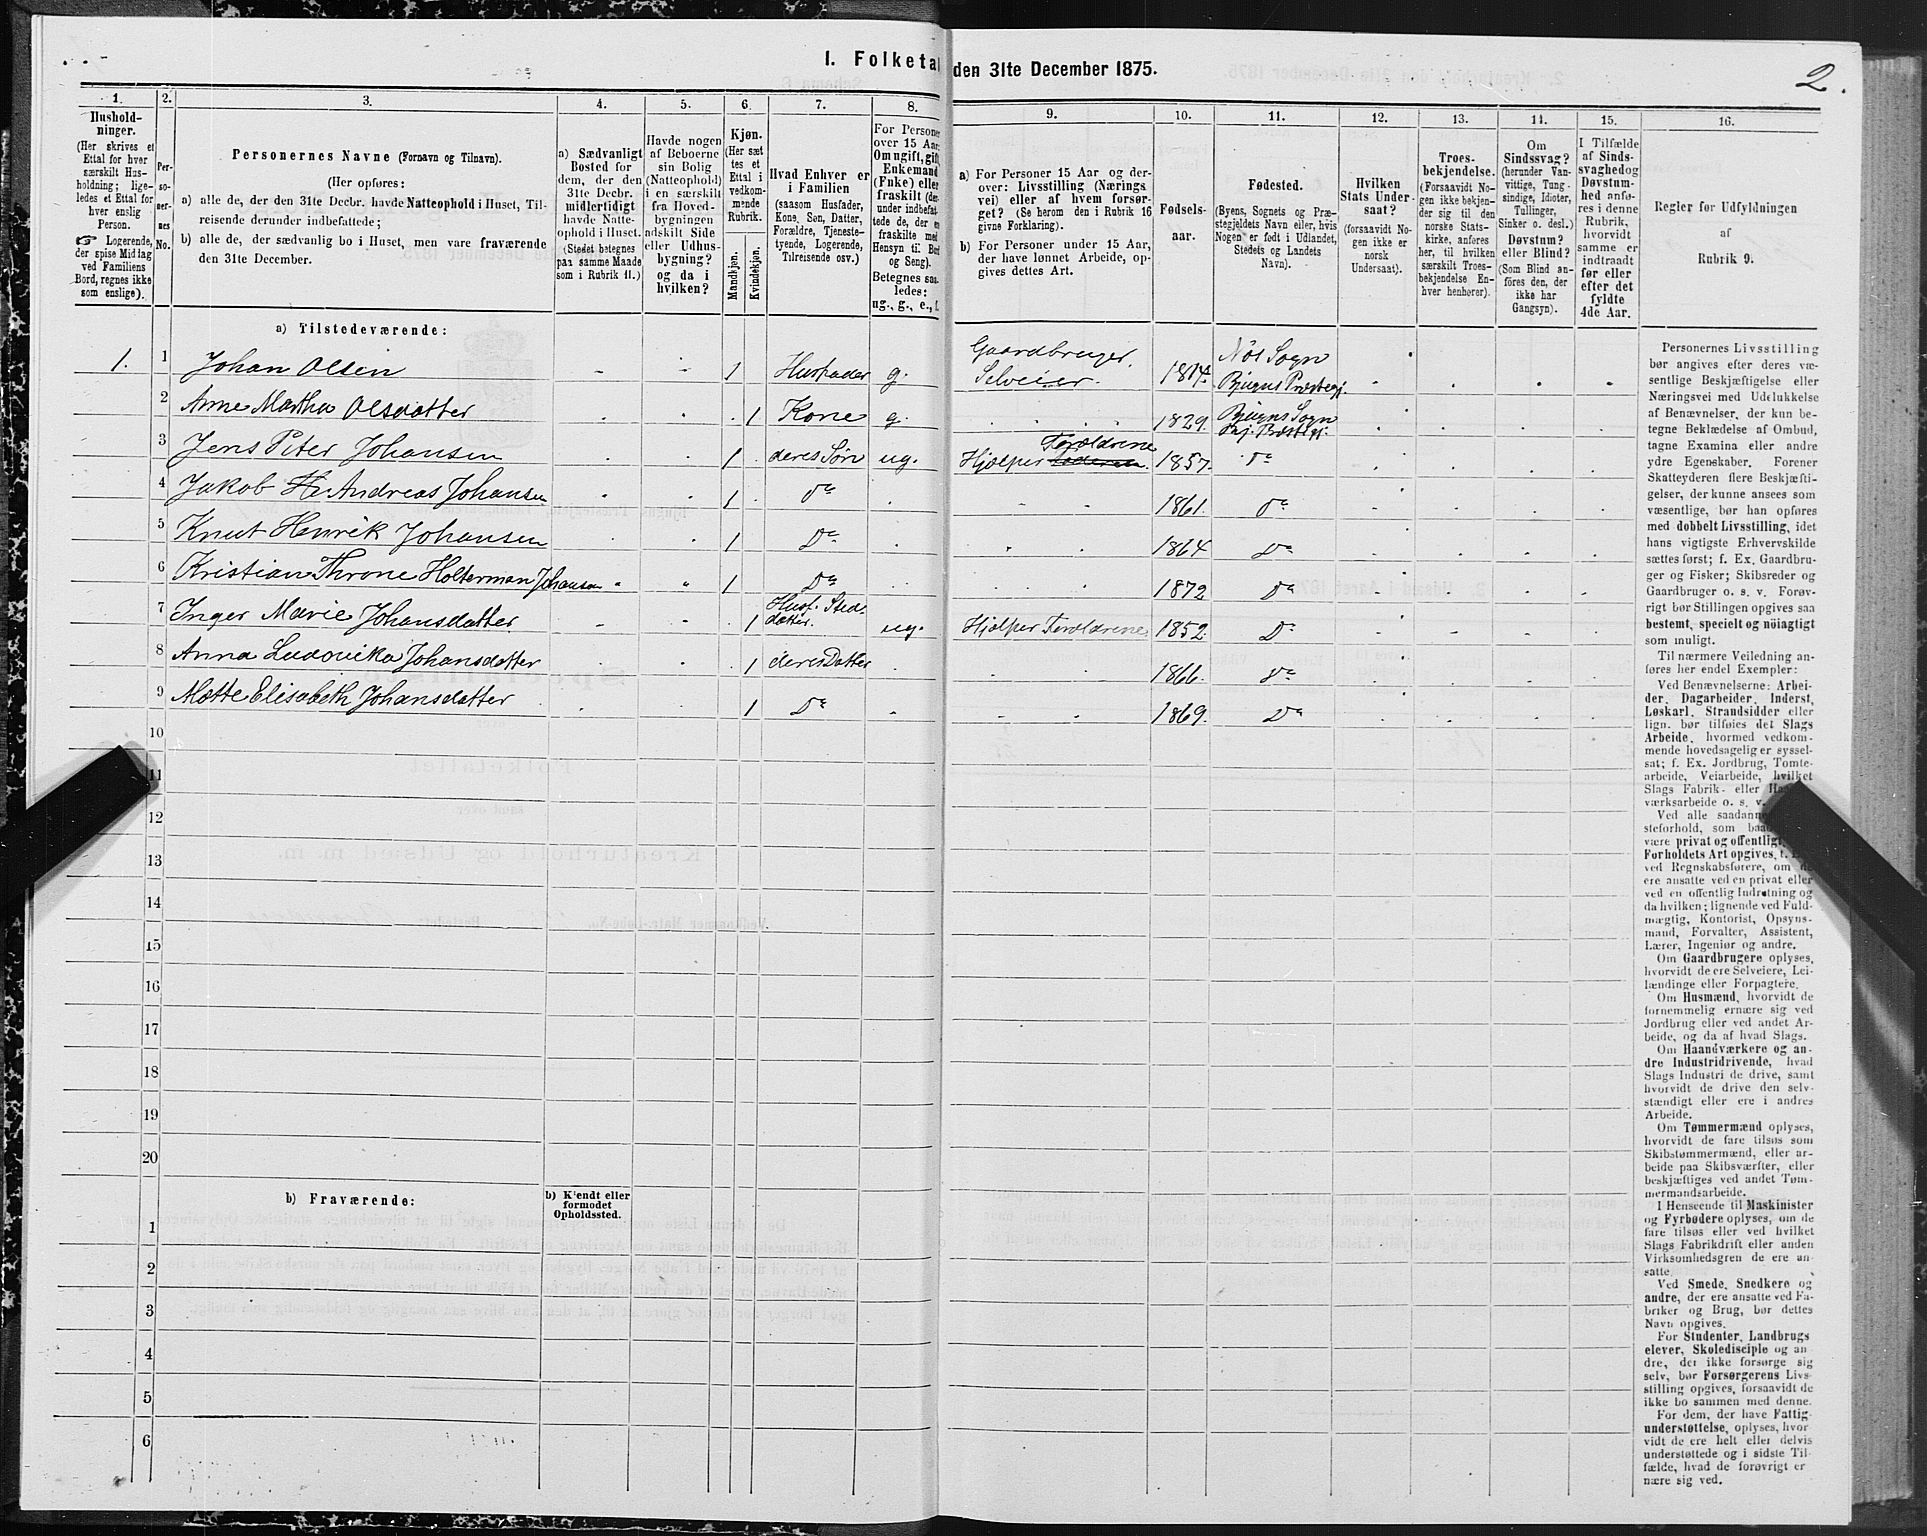 I. Folketal den 31te December 1875.
2.
1. 2. 3. 4. 5. 6. 7. 8. 9. 10. 11. 12. 13. 14. 15. 16.
Husholdninger.
(Her skrives et
Ettal for hver
særskilt Hus-
holdning; lige-
ledes et Ettal for
hver enslig
Person.
☞ Logerende,
der spise Middag
ved Familiens
Bord, regnes ikke
som enslige).
Per-
so-
ner-
nes
No.
Personernes Navne (Fornavn og Tilnavn).
(Her opføres:
a) alle de, der den 31te Decbr. havde Natteophold i Huset, Til-
reisende derunder indbefattede;
b) alle de, der sædvanlig bo i Huset, men vare fraværende
den 31te December.
a) Sædvanligt
Bosted for
dem, der den
31te Decbr.
midlertidigt
havde Natte-
ophold i Huset.
(Stedet betegnes
paa samme Maade
som i Rubrik 11.)
Havde nogen
af Beboerne
sin Bolig
(Natteophold)
i en særskilt
fra Hoved-
bygningen
adskilt Side
eller Udhus-
bygning?
og da i
hvilken?
Kjøn.
(Her sæt-
tes et
Ettal i
vedkom-
mende
Rubrik.
Mandkjøn.
Kvindekjøn.
Hvad Enhver er
i Familien
(saasom Husfader,
Kone, Søn, Datter,
Forældre, Tjeneste-
tyende, Logerende,
Tilreisende osv.)
For Personer
over 15 Aar:
Om ugift, gift,
Enkemand
(Enke) eller
fraskilt (der-
under indbefat-
tede de, der ere
fraskilte med
Hensyn til Bord
og Seng).
Betegnes saa-
ledes:
ug., g., e., f.
a) For Personer 15 Aar og der-
over: Livsstilling (Nærings-
vei) eller af hvem forsør-
get? (Se herom den i Rubrik 16
givne Forklaring).
b) For Personer under 15 Aar,
der have lønnet Arbeide, op-
gives dettes Art.
Fødsels-
aar.
Fødested.
(Byens, Sognets og Præ-
stegjeldets Navn eller, hvis
Nogen er født i Udlandet,
Stedets og Landets
Navn).
Hvilken
Stats Under-
saat?
(forsaavidt No-
gen ikke er
norsk
Undersaat).
Troes-
bekjendelse.
(Forsaavidt No-
gen ikke bekjen-
der sig til den
norske Stats-
kirke, anføres
her, til hvilken
særskilt Troes-
bekjendelse En-
hver henhører).
Om
Sindssvag?
(herunder Van-
vittige, Tung-
sindige, Idioter,
Tullinger,
Sinker o. desl.)
Døvstum?
eller Blind?
(Som Blind an-
føres den, der
ikke har
Gangsyn).
I Tilfælde
af Sinds-
svaghed og
Døvstum-
hed anfø-
res i denne
Rubrik,
hvorvidt
samme er
indtraadt
før eller
efter det
fyldte
4de Aar.
Regler for Udfyldningen
af
Rubrik 9.
a) Tilstedeværende:
1. 1 Johan Olsen 1 Husfader g. Gaardbruger Selveier. 1814. Nøs Sogn Bjugns Præstegj.
2 Anne Martha Olsdatter 1 Kone g. 1829. Bjugns Sogn
3 Jens Peter Johansen 1 deres Søn ug. Hjælper Forældrene 1857. do
4 Jakob Andreas Johansen 1 do 1861. do
5 Knut Henrik Johansen 1 Do 1864 Do
6 Kristian Throne Holterman Johansen 1 Do 1872 Do
7 Inger Marie Johansdatter 1 Husf. Sted- datter. ug. Hjælper Forældrene 1852. Do
8 Anna Ludovika Johansdatter 1 deres Datter 1866. do
9 Mette Elisabeth Johansdatter 1 Do 1869. Do
10
11
12
13
14
15
16
17
18
19
20
b) Fraværende:
b) Kjendt eller
formodet
Opholdssted.
1
2
3
4
5
6
Personernes Livsstilling
bør angives efter deres væ-
sentlige Beskjæftigelse eller
Næringsvei med Udelukkelse
af Benævnelser, der kun be-
tegne Beklædelse af Ombud,
tagne Examina eller andre
ydre Egenskaber. Forener
Skatteyderen flere Beskjæfti-
gelser, der kunne ansees som
væsentlige, bør han opføres
med dobbelt Livsstilling, idet
hans vigtigste Erhvervskilde
sættes først; f. Ex. Gaardbru-
ger og Fisker; Skibsreder og
Gaardbruger o. s. v. Forøv-
rigt bør Stillingen opgives saa
bestemt, specielt og nöiagtigt
som muligt.
Til nærmere Veiledning an-
føres her endel Exempler:
Ved Benævnelserne: Arbei-
der, Dagarbeider, Inderst,
Løskarl, Strandsidder eller
lign. bør tilføies det Slags
Arbeide, hvormed vedkom-
mende hovedsagelig er syssel-
sat; f. Ex. Jordbrug, Tomte-
arbeide, Veiarbeide, hvilket
Slags Fabrik- eller
værksarbeide o. s. v.
Ved alle saadanne
steforhold, som
være privat og offentligt,
Forholdets Art opgives,
ved Regnskabsførere, om
ere ansatte ved en privat eller
ved en offentlig Indretning og
da hvilken; lignende ved Fuld-
mægtig, Kontorist, Opsyns-
mand, Forvalter, Assistent,
Lærer, Ingeniør og andre.
Om Gaardbrugere oplyses,
hvorvidt de ere Selveiere, Lei-
lændinge eller Forpagtere.
Om Husmænd, hvorvidt de
fornemmelig ernære sig ved
Jordbrug eller ved andet Ar-
beide, og da af hvad Slags.
Om Haandværkere og an-
dre Industridrivende, hvad
Slags Industri de drive, samt
hvorvidt de drive den selv-
stændigt eller ere i andres
Arbeide.
Om Tømmermænd oplyses,
hvorvidt de fare tilsøs som
Skibstømmermænd, eller ar-
beide paa Skibsværfter, eller
beskjæftiges ved andet Tøm-
mermandsarbeide.
I Henseende til Maskinister
og Fyrbødere oplyses, om de
fare tilsøs eller ved hvilket
Slags Fabrikdrift eller anden
Virksomhedsgren de ere an-
satte.
Ved Smede, Snedkere og
andre, der ere ansatte ved Fa-
briker og Brug, bør dettes
Navn opgives.
For Studenter, Landbrugs-
elever, Skoledisciple og an-
dre, der ikke forsørge sig
selv, bør Forsørgerens Livs-
stilling opgives, forsaavidt de
ikke bo sammen med denne.
For dem, der have Fattig-
understøttelse, oplyses, hvor-
vidt de ere helt eller delvis
understøttede og i sidste Til-
fælde, hvad de forøvrigt er-
nære sig ved.